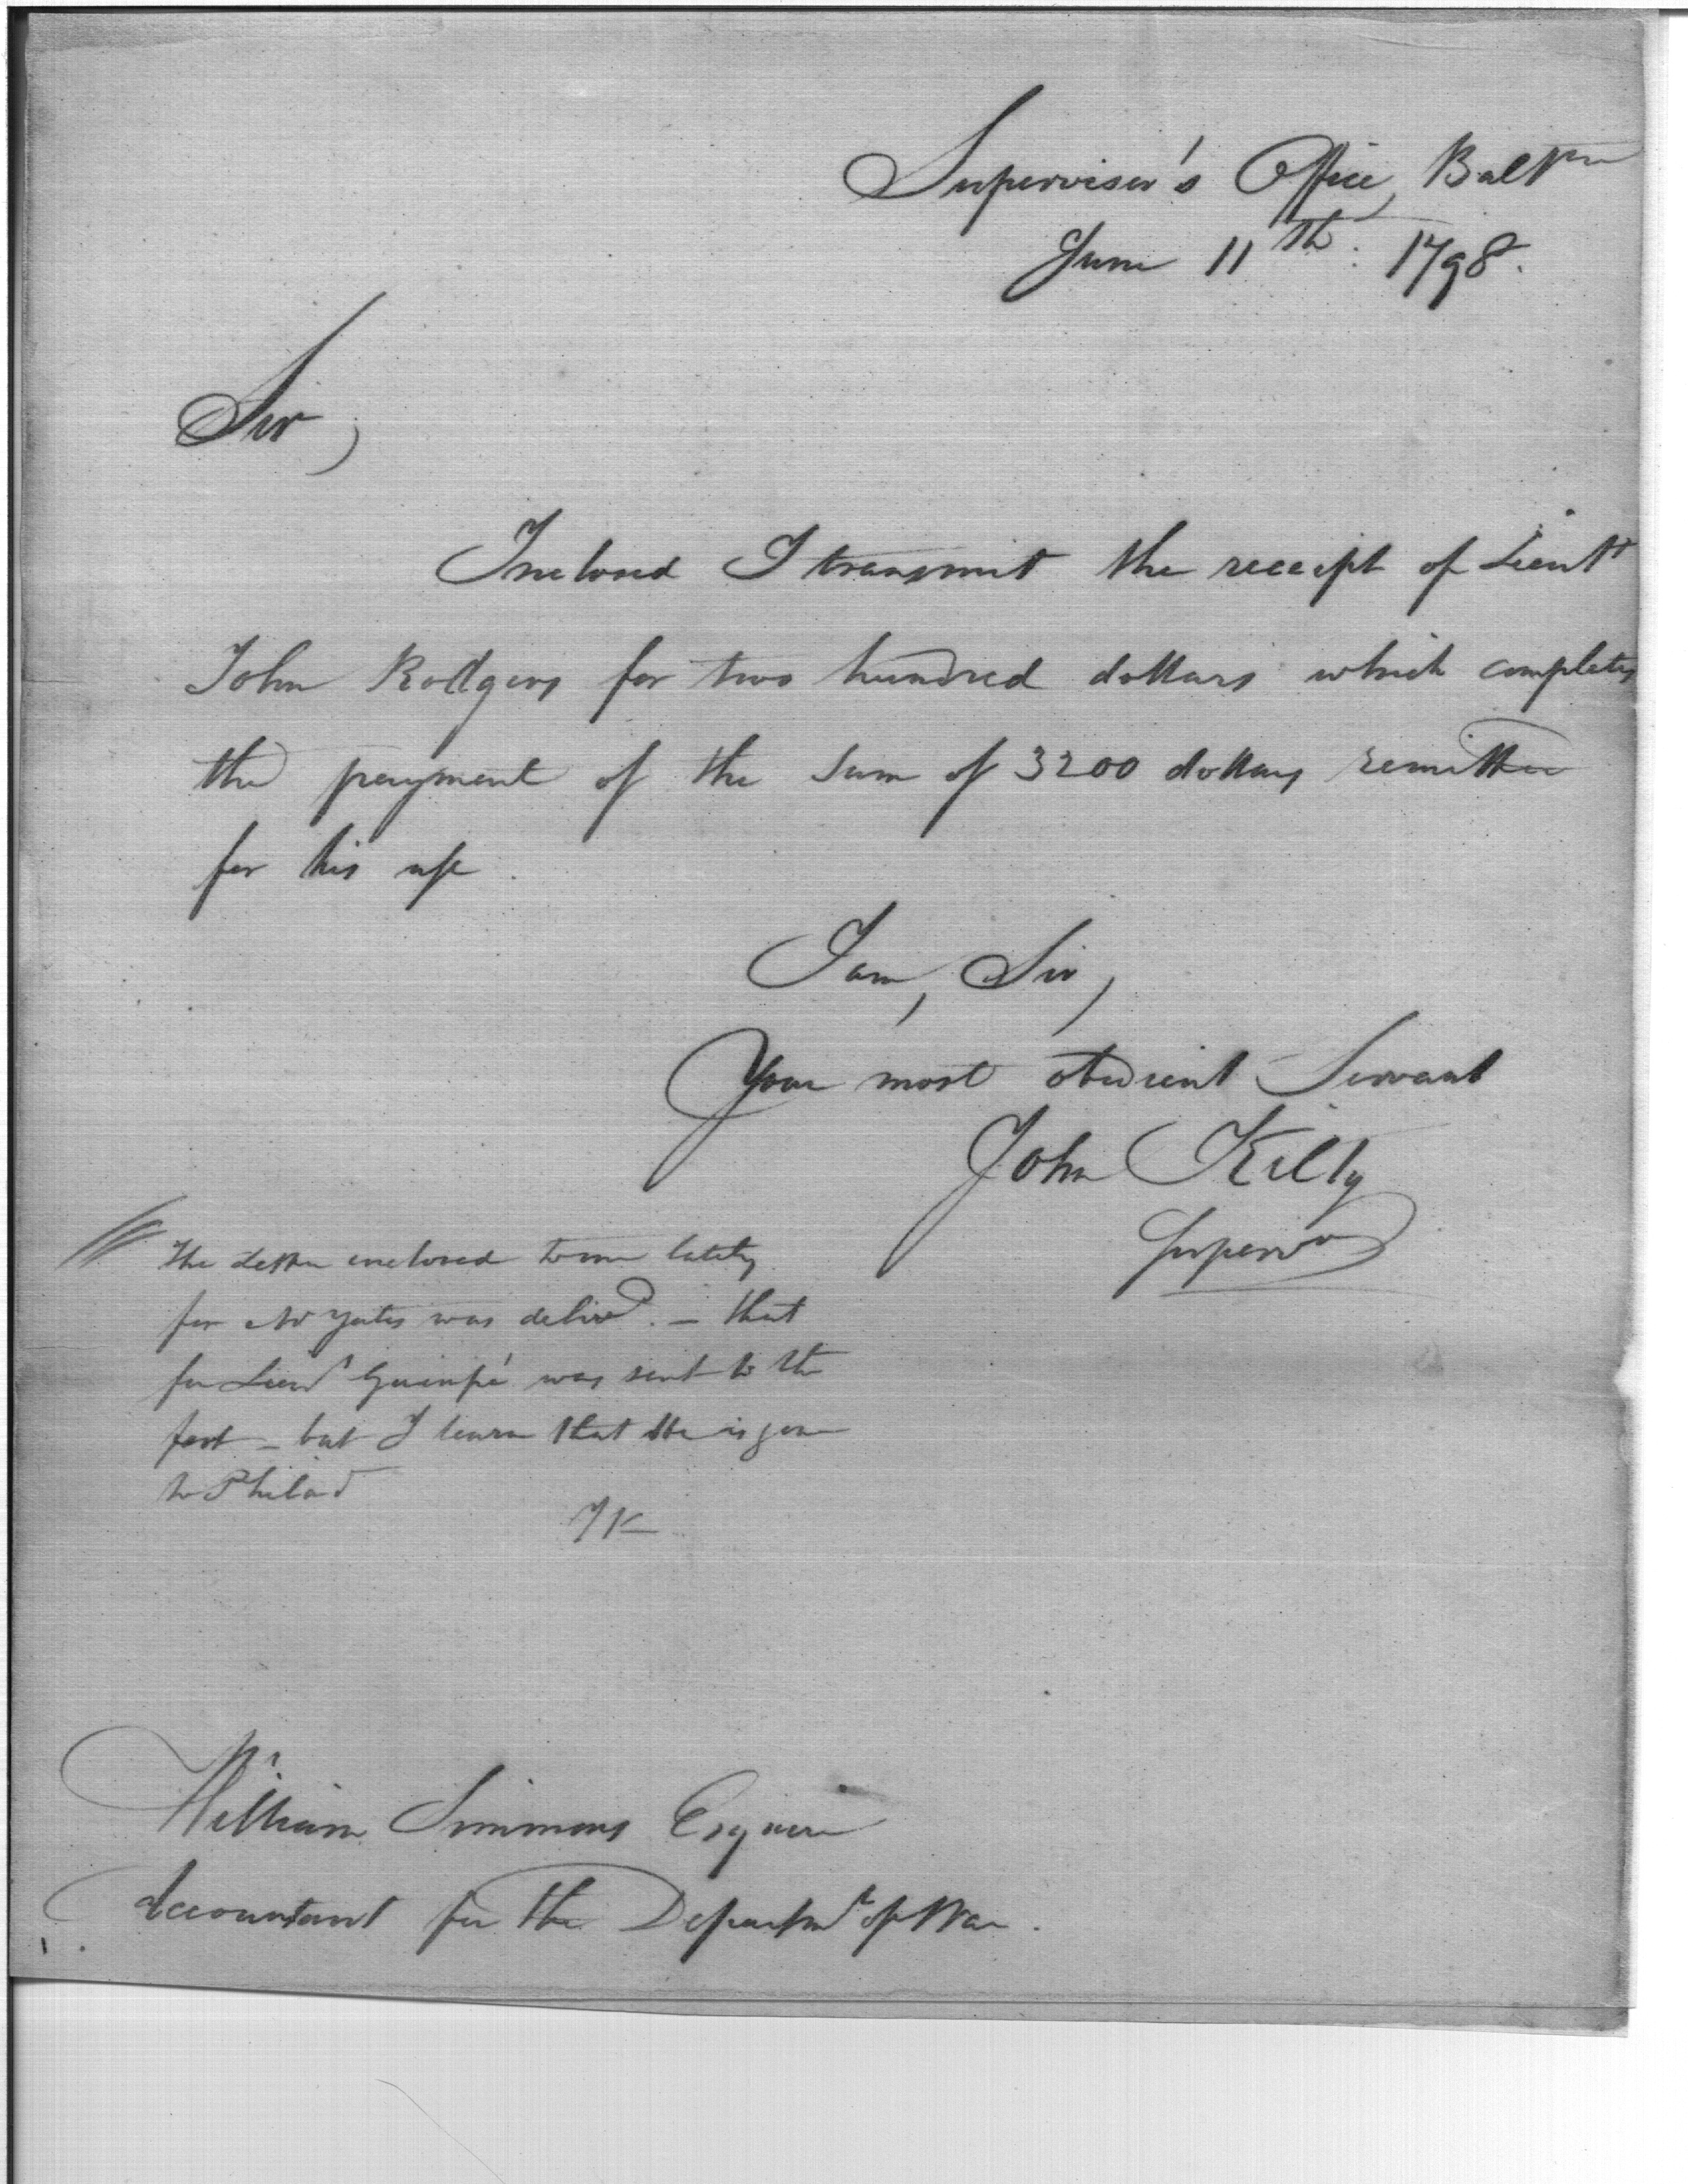 Supervisor's Office, Balt
June 11th. 1798.
Sir,
Inclosed I transmit the receipt of Lieut
John Rodgers for two hundred dollars which completes
the payment of the sum of 3200 dollars remitted
for his use.
I am, Sir,
Your most obedient Servant
John Kilty
Supervr
The letter inclosed to me lately
for Mr Yates was delivd. — that
for Lieut was sent to the
fort — but I learn that he is gone
to Philad
JK
William Simmons Esquire
Accountant for the Departmt of War.